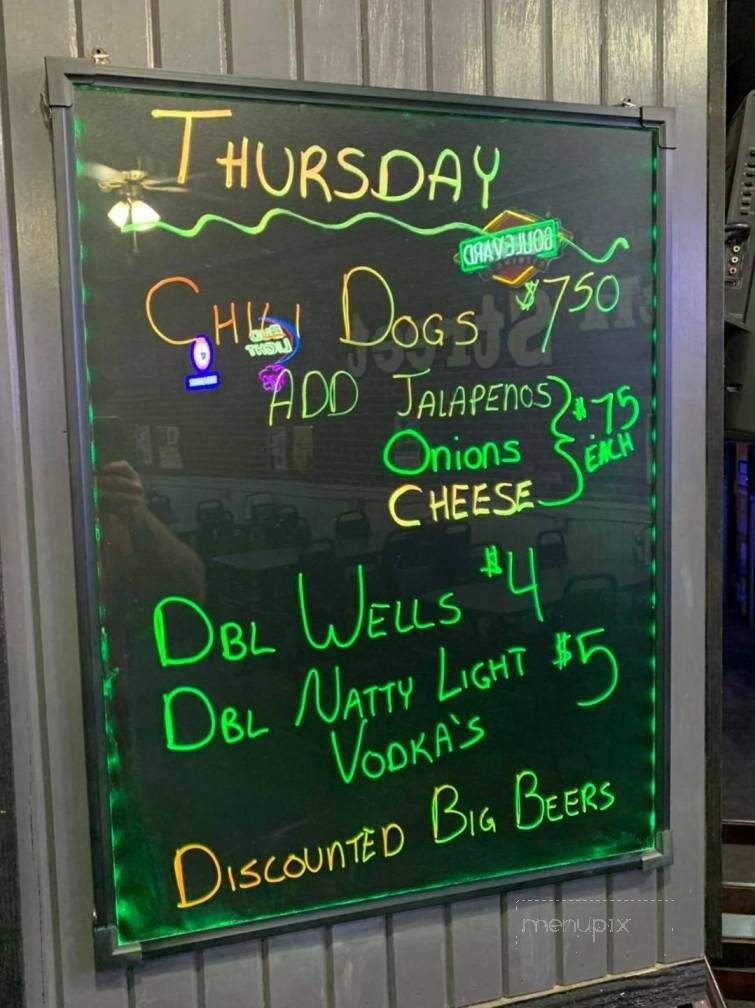 THURSDAY
BOULEVARD
CHILI DOGS $7.50
BUD
LIGHT
Street
ADD JALAPENOS
Onions
CHEESE
$.75
EACH
DBL WELLS $4
DBL NATTY LIGHT $5
VODKA'S
DISCOUNTED BIG BEERS
menupix